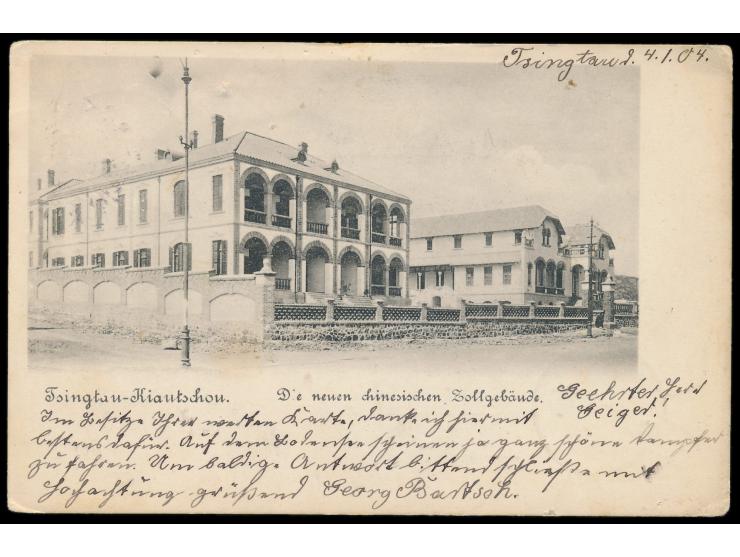 Tsingtau d. 4.1.04.
Tsingtau-Kiautschou. Die neuen chinesischen Zollgebäude.
Geehrter Herr
Geiger!
Im Besitze Ihrer werten Karte, danke ich hiermit
bestens dafür. Auf dem Bodensee scheinen ja ganz schöne Dampfer
zu fahren. Um baldige Antwort bittend schließe mit
Hochachtung grüßend Georg Bartsch.